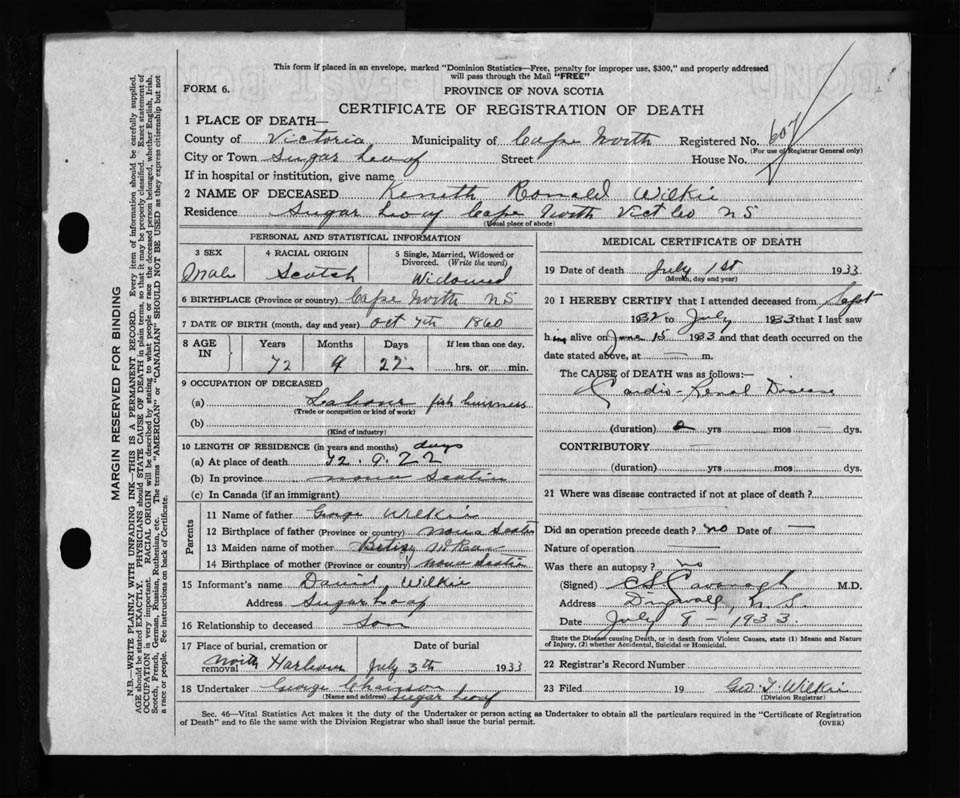 This form if placed in an envelope, marked "Dominion Statistics—Free, penalty for improper use, $300," and properly addressed
will pass through the Mail "FREE"
FORM 6.
PROVINCE OF NOVA SCOTIA
CERTIFICATE OF REGISTRATION OF DEATH
1 PLACE OF DEATH—
County of Victoria Municipality of Cape North Registered No. 607
(For use of Registrar General only)
City or Town Sugar Loaf Street House No.
If in hospital or institution, give name
2 NAME OF DECEASED Keneth Ronald Wilkie
Residence Sugar Loaf Cape North Vict Co NS
(Usual place of abode)
PERSONAL AND STATISTICAL INFORMATION
3 SEX 4 RACIAL ORIGIN 5 Single, Married, Widowed or
Divorced. (Write the word)
Male Scotch Widowed
6 BIRTHPLACE (Province or country) Cape North NS
7 DATE OF BIRTH (month, day and year) Oct 7th 1860
8 AGE IN Years Months Days If less than one day,
72 9 22 hrs. or min.
9 OCCUPATION OF DECEASED
(a) Labour fish buisness
(Trade or occupation or kind of work)
(b)
(Kind of industry)
10 LENGTH OF RESIDENCE (in years and months) days
(a) At place of death 72. 9. 22
(b) In province Nova Scotia
(c) In Canada (if an immigrant)
Parents
11 Name of father George Wilkie
12 Birthplace of father (Province or country) Nova Scotia
13 Maiden name of mother Betsy McRae
14 Birthplace of mother (Province or country) Nova Scotia
15 Informant's name David Wilkie
Address Sugar Loaf
16 Relationship to deceased Son
17 Place of burial, cremation or removal Date of burial
North Harbour July 3th 1933
18 Undertaker George
(Name and address) Sugar Loaf
MEDICAL CERTIFICATE OF DEATH
19 Date of death July 1st 1933
(Month, day and year)
20 I HEREBY CERTIFY that I attended deceased from Sept
1932 to July 1933 that I last saw
him alive on June 15 1933 and that death occurred on the
date stated above, at — m.
The CAUSE of DEATH was as follows:—
Cardio-Renal Disease
(duration) 2 yrs mos — dys.
CONTRIBUTORY
(duration) yrs mos dys.
21 Where was disease contracted if not at place of death?
Did an operation precede death? no Date of —
Nature of operation
Was there an autopsy? no
(Signed) C S Cavanagh M.D.
Address Dingwall, N.S.
Date July 8 - 1933.
State the Disease causing Death, or in death from Violent Causes, state (1) Means and Nature
of Injury, (2) whether Accidental, Suicidal or Homicidal.
22 Registrar's Record Number
23 Filed 19 Geo T. Wilkie
(Division Registrar)
Sec. 46—Vital Statistics Act makes it the duty of the Undertaker or person acting as Undertaker to obtain all the particulars required in the "Certificate of Registration
of Death" and to file the same with the Division Registrar who shall issue the burial permit. (OVER)
MARGIN RESERVED FOR BINDING
N.B.—WRITE PLAINLY WITH UNFADING INK—THIS IS A PERMANENT RECORD. Every item of information should be carefully supplied.
AGE should be stated EXACTLY. PHYSICIANS should STATE CAUSE OF DEATH in plain terms, so that it may be properly classified. Exact statement of
OCCUPATION is very important. RACIAL ORIGIN will be described by stating to what people or race the deceased person belonged, whether English, Irish,
Scotch, French, German, Russian, Ruthenian, etc. The terms "AMERICAN" or "CANADIAN" SHOULD NOT BE USED as they express citizenship but not
a race or people. See instructions on back of Certificate.